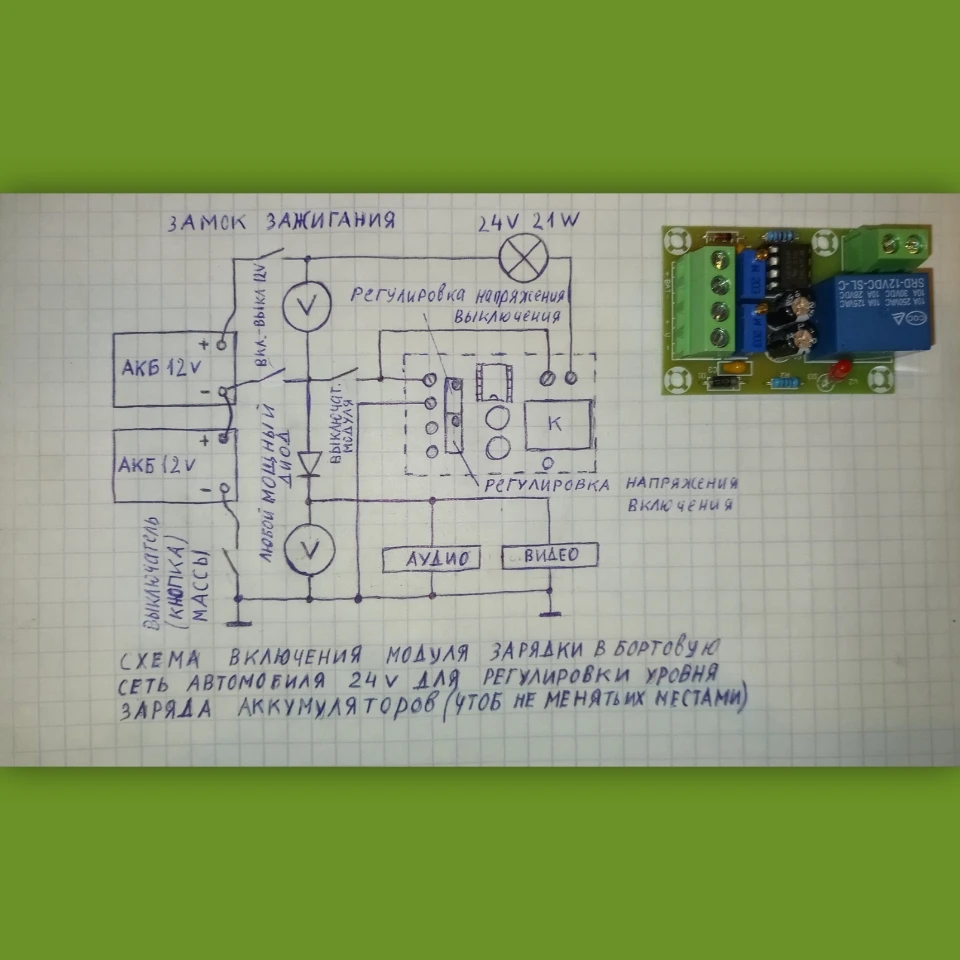 ЗАМОК ЗАЖИГАНИЯ
24V 21W
ВКЛ.-ВЫКЛ 12V
V
РЕГУЛИРОВКА НАПРЯЖЕНИЯ
ВЫКЛЮЧЕНИЯ
АКБ 12V
+
-
АКБ 12V
+
-
ВЫКЛЮЧАТ.
МОДУЛЯ
К
ЛЮБОЙ МОЩНЫЙ
ДИОД
РЕГУЛИРОВКА НАПРЯЖЕНИЯ
ВКЛЮЧЕНИЯ
V
АУДИО
ВИДЕО
ВЫКЛЮЧАТЕЛЬ
(КНОПКА)
МАССЫ
СХЕМА ВКЛЮЧЕНИЯ МОДУЛЯ ЗАРЯДКИ В БОРТОВУЮ
СЕТЬ АВТОМОБИЛЯ 24V ДЛЯ РЕГУЛИРОВКИ УРОВНЯ
ЗАРЯДА АККУМУЛЯТОРОВ (ЧТОБ НЕ МЕНЯТЬ ИХ МЕСТАМИ)
SRD-12VDC-SL-C
10A 250VAC 10A 125VAC
10A 30VDC 10A 28VDC